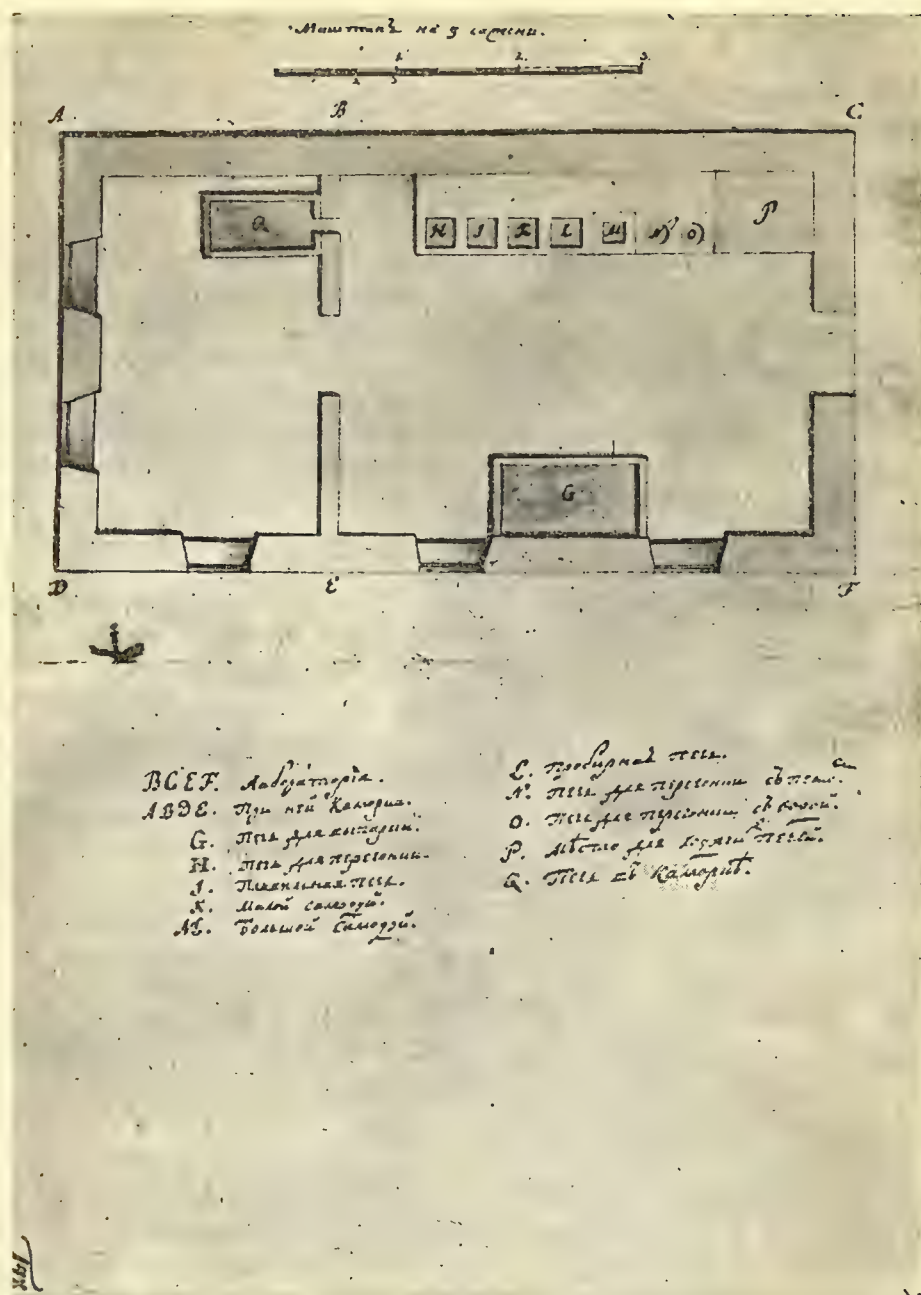 Маштапъ на 3 сажени.
1. 2. 3.
A B C
Q H J K L M N) O) P
G
D E F
BCEF. Лаборатория.
ABDE. При ней Камора.
G. Печь для
H. Печь для перегонки.
J. Плавильная печь.
K. Малой самодуй.
M. Большой Самодуй.
L. Пробирная печь.
N. Печь для перегонки съ
O. Печь для перегонки съ водой.
P. Мѣсто для печей.
Q. Печь въ Каморкѣ.